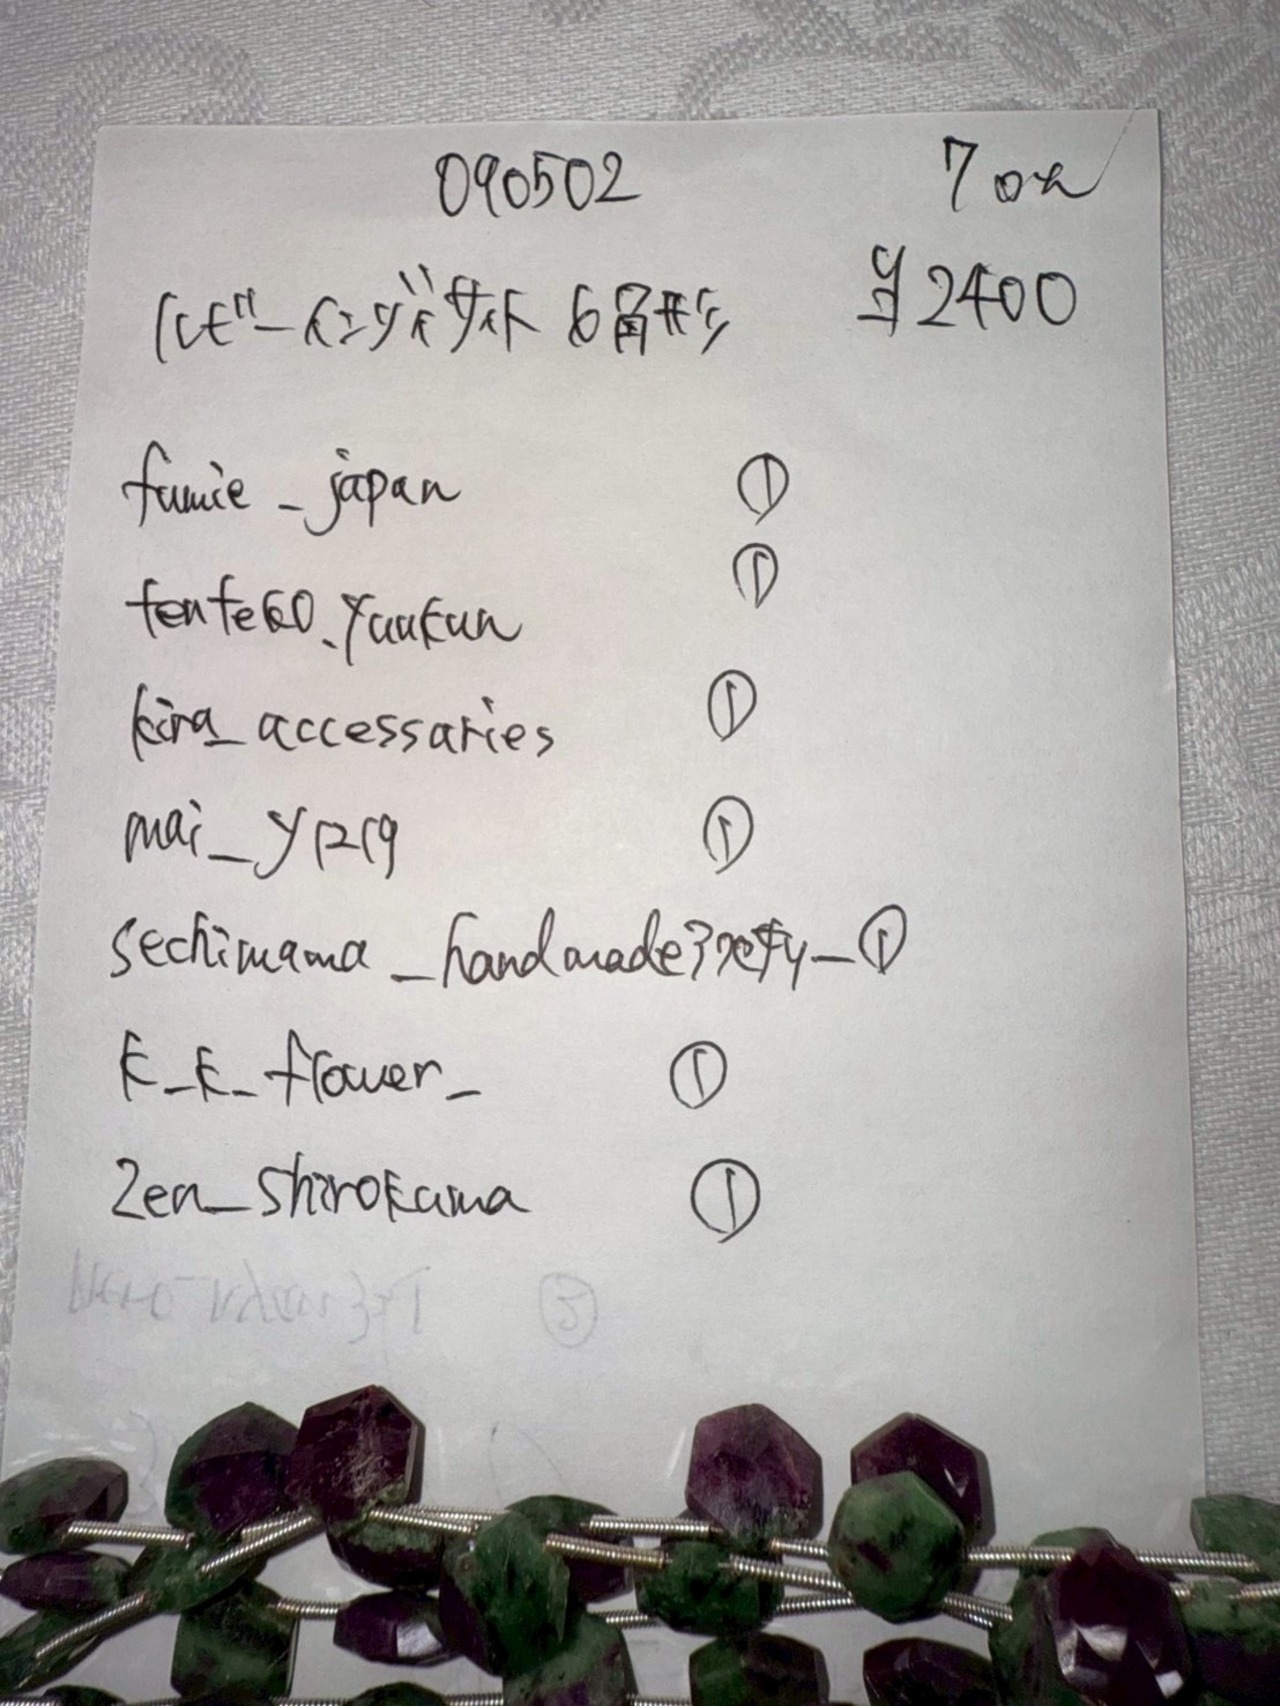 090502
¥2400
ルビーインゾイサイト 6角形
fumie_japan ①
tenteko.yuukun ①
kira_accessaries ①
mai_y1219 ①
sechimama_handmade ①
k_k_flower_ ①
zen_shirokuma ①